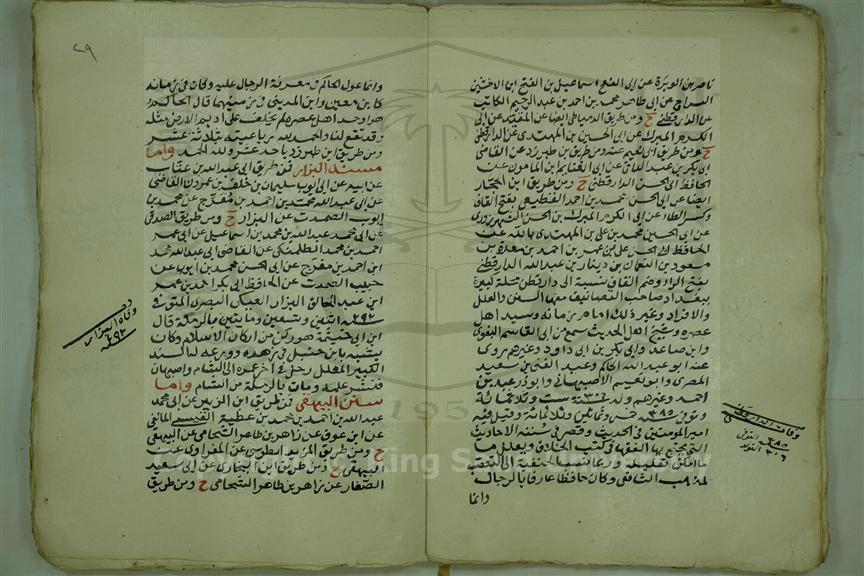 ناصر بن الوبرة عن ابى الفتح اسماعيل بن الفتح ابن الاخشيد
السراج عن ابى طاهر محمد بن احمد بن عبد الرحيم الكاتب
عن الدارقطنى ح ومن طريق الدمياطى ايضا عن المقير عن ابى
الكرم المبرك عن ابى الحسين بن المهتدى عن الدارقطنى
ح ومن طريق ابى نعيم عنه ومن طريق بن طبرزد عن القاضى
ابى بكر بن عبد الباقى عن ابى الغنايم ابن المامون عن
الحافظ ابى الحسن الدارقطنى ح ومن طريق ابن البخارى
ايضا عن ابى الحسن محمد بن احمد القطيعى بفتح القاف
وكسر الطاء عن ابى الكرم المبرك بن الحسن الشهرزورى
عن ابى الحسين محمد بن على بن المهتدى بالله عن
الحافظ ابى الحسن على بن عمر بن احمد بن مهدى بن
مسعود بن النعمان بن دينار بن عبد الله الدارقطنى
بفتح الراء وضم القاف نسبة الى دارقطن محلة كبيرة
ببغداد صاحب التصانيف منها السنن والعلل
والافراد وغير ذلك امام زمانه وسيد اهل
عصره وشيخ اهل الحديث سمع من ابى القاسم البغوى
وابن صاعد وابى بكر بن ابى داود وغيرهم روى
عنه ابو عبد الله الحاكم وعبد الغنى بن سعيد
المصرى وابو نعيم الاصبهانى وابو ذر عبد بن
احمد وغيرهم ولد سنة ست وثلاثمائة
وتوفى ٣٨٥ خمس وثمانين وثلاثمائة وقيل فيه
امير المومنين فى الحديث وقصر فى سننه الاحاديث
التى يحتج بها الفقهاء فى كتب الخلاف ويعلل ما
امكن تعليله وربما نسبه الحنفية الى التعصب
لمذهب الشافعى وكان حافظا عارفا بالرجال
وانما
٣٨٥
٣٠٦
٢٩
وانما عول الحاكم فى معرفة الرجال عليه وكان فى زمانه
كابن معين وابن المدينى فى زمنيهما قال الحاكم
هو اوحد اهل عصره لم يخلف على اديم الارض مثله
وقد تقع لنا والحمد لله رباعيته بثلاثة عشر
ومن طريق ابن طبرزد باحد عشر ولله الحمد واما
مسند البزار فمن طريق ابى عبد الله بن عتاب
عن ابيه عن ابى ايوب سليمان بن خلف بن عمرون القاضى
عن ابى عبد الله محمد بن احمد بن مفرج عن محمد بن
ايوب الصموت عن البزار ح ومن طريق الصدفى
عن ابى محمد عبد الله بن محمد بن اسماعيل عن ابى عمر
احمد بن محمد الطلمنكى عن القاضى ابى عبد الله محمد
ابن احمد بن مفرج عن ابى الحسن محمد بن ايوب عن
حبيب الصموت عن الحافظ ابى بكر احمد بن عمر
ابن عبد الخالق البزار العتكى البصرى المتوفى
٢٩٢ اثنين وتسعين ومائتين بالرملة قال
ابن ابى خيثمة هو ركن من اركان الاسلام وكان
يشبه بابن حنبل فى زهده وورعه له المسند
الكبير المعلل رحل فى آخر عمره الى الشام واصبهان
فنشر علمه ومات بالرملة من الشام واما
سنن البيهقى فمن طريق ابن الزبير عن ابى محمد
عبد الله بن احمد بن محمد بن عطية القيسى المالقى
عن ابن عوق عن زاهر بن طاهر الشحامى عن البيهقى
ح ومن طريق المزيد الطوسى عن الفراوى عن
البيهقى ح ومن طريق ابن البخارى عن ابى سعيد
الصفار عن زاهر بن طاهر الشحامى ح ومن طريق
وفاة البزار
٢٩٢